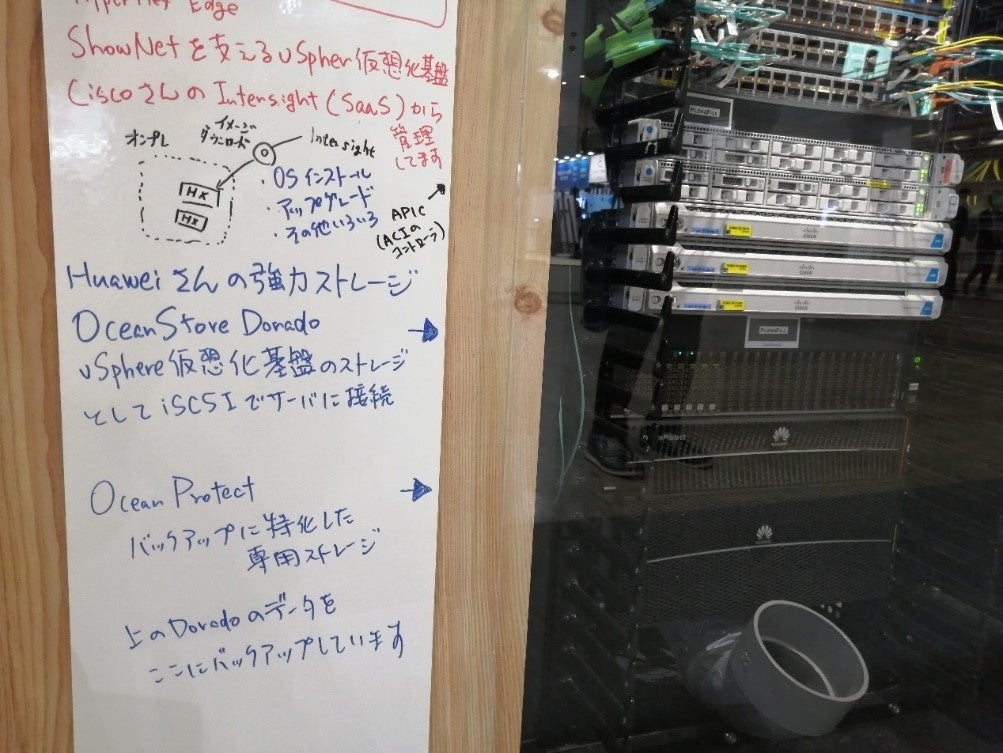 HyperFlex Edge
ShowNetを支えるvSpher仮想化基盤
CiscoさんのIntersight(SaaS)から
管理
してます
オンプレ
イメージ
ダウンロード
Intersight
HX
HX
・OSインストール
・アップグレード
・その他いろいろ
APIC
(ACIの
コントローラ)
Huaweiさんの強力ストレージ
OceanStore Dorado
vSphere仮想化基盤のストレージ
としてiSCSIでサーバに接続
Ocean Protect
バックアップに特化した
専用ストレージ
上のDoradoのデータを
ここにバックアップしています
CISCO
CISCO
CISCO
PLENAFILL
PLENAFILL
Protect